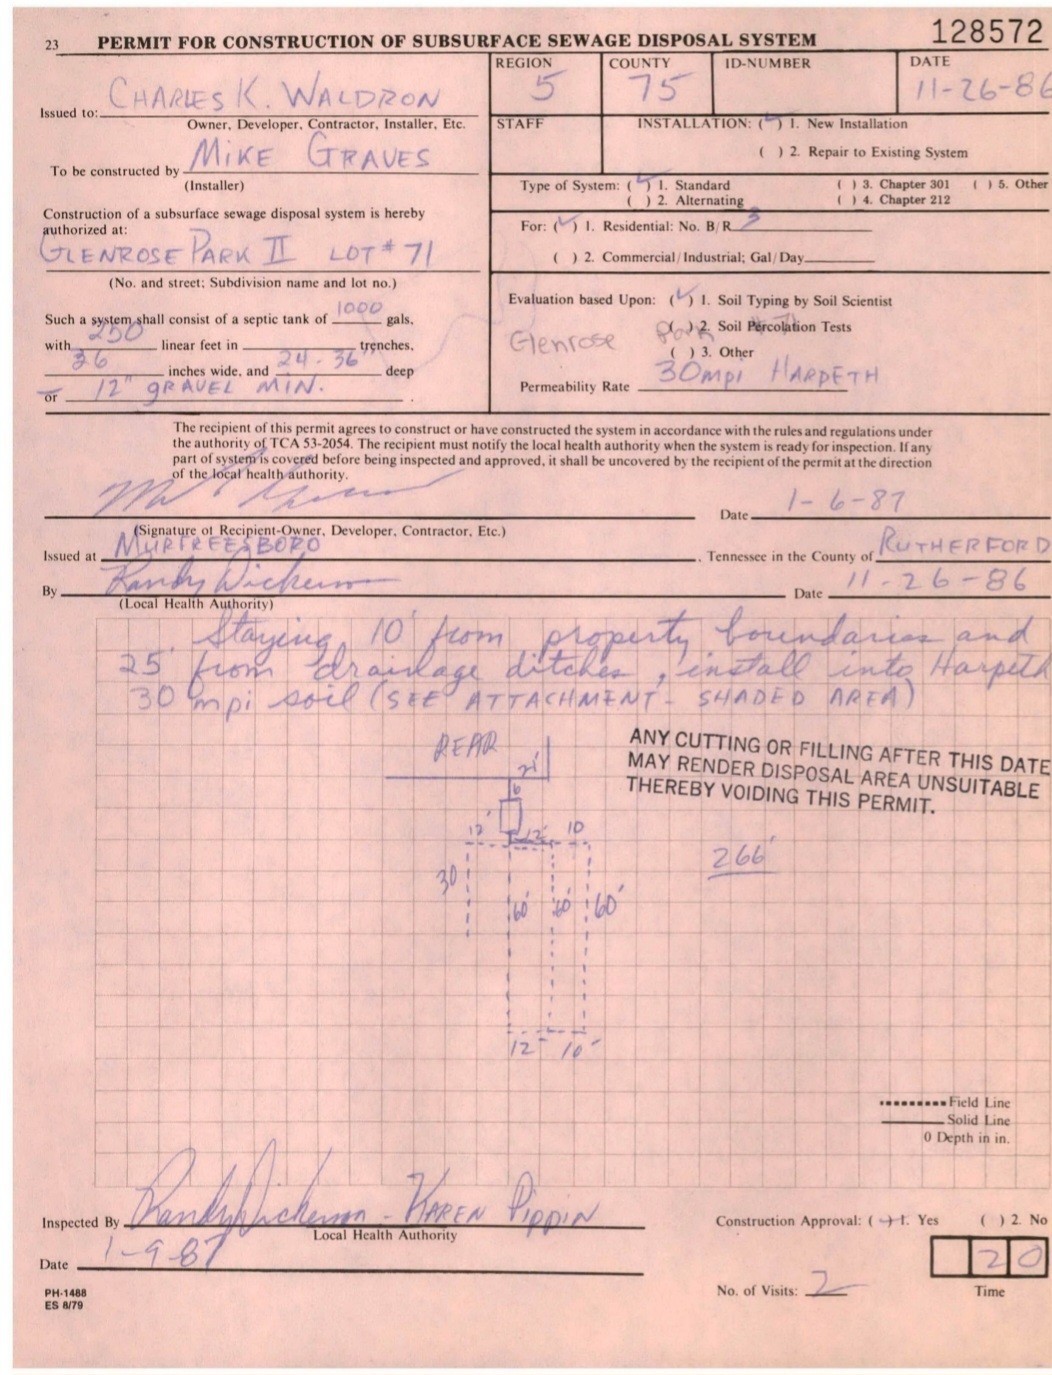 23 PERMIT FOR CONSTRUCTION OF SUBSURFACE SEWAGE DISPOSAL SYSTEM 128572
REGION 5 COUNTY 75 ID-NUMBER DATE 11-26-86
Issued to: CHARLES K. WALDRON
Owner, Developer, Contractor, Installer, Etc.
To be constructed by MIKE GRAVES
(Installer)
Construction of a subsurface sewage disposal system is hereby
authorized at:
GLENROSE PARK II LOT # 71
(No. and street; Subdivision name and lot no.)
Such a system shall consist of a septic tank of 1000 gals.
with 250 linear feet in trenches.
36 inches wide, and 24-36" deep
or 12" GRAVEL MIN.
STAFF INSTALLATION: (✓) 1. New Installation
( ) 2. Repair to Existing System
Type of System: (✓) 1. Standard ( ) 3. Chapter 301 ( ) 5. Other
( ) 2. Alternating ( ) 4. Chapter 212
For: (✓) 1. Residential: No. B/R 3
( ) 2. Commercial/Industrial; Gal/Day
Evaluation based Upon: (✓) 1. Soil Typing by Soil Scientist
( ) 2. Soil Percolation Tests
Glenrose Park
( ) 3. Other
Permeability Rate 30mpi HARPETH
The recipient of this permit agrees to construct or have constructed the system in accordance with the rules and regulations under
the authority of TCA 53-2054. The recipient must notify the local health authority when the system is ready for inspection. If any
part of system is covered before being inspected and approved, it shall be uncovered by the recipient of the permit at the direction
of the local health authority.
Date 1-6-87
(Signature of Recipient-Owner, Developer, Contractor, Etc.)
Issued at MURFREESBORO, Tennessee in the County of RUTHERFORD
By Randy Dickerson Date 11-26-86
(Local Health Authority)
Staying 10' from property boundaries and
25' from drainage ditches, install into Harpeth
30 mpi soil (SEE ATTACHMENT - SHADED AREA)
ANY CUTTING OR FILLING AFTER THIS DATE
MAY RENDER DISPOSAL AREA UNSUITABLE
THEREBY VOIDING THIS PERMIT.
REAR
21'
6
12' 12' 10
266'
30
60' 60' 60'
12' 10'
Field Line
Solid Line
0 Depth in in.
Inspected By Randy Dickerson - KAREN PIPPIN
Local Health Authority
Construction Approval: (✓) 1. Yes ( ) 2. No
Date 1-9-87
No. of Visits: 2
20
Time
PH-1488
ES 8/79